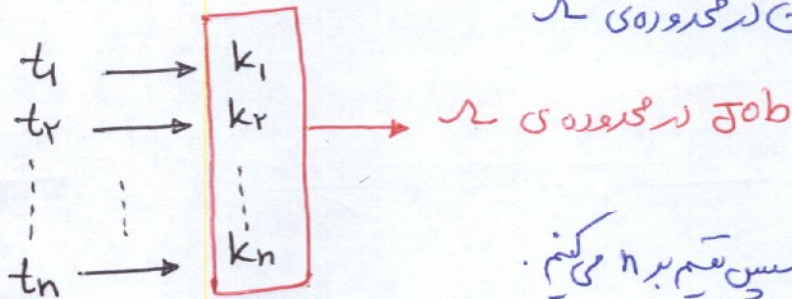 در محدوده‌ی
t₁ → k₁
t₂ → k₂
Job در محدوده‌ی
tₙ → kₙ
سپس تقسیم بر n می‌کنیم.